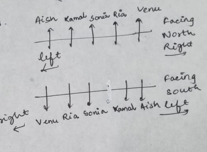 Aish Kamal Sonia Ria Venu
Facing
North
left
Right
Facing
South
right
Venu Ria Sonia Kamal Aish
Left